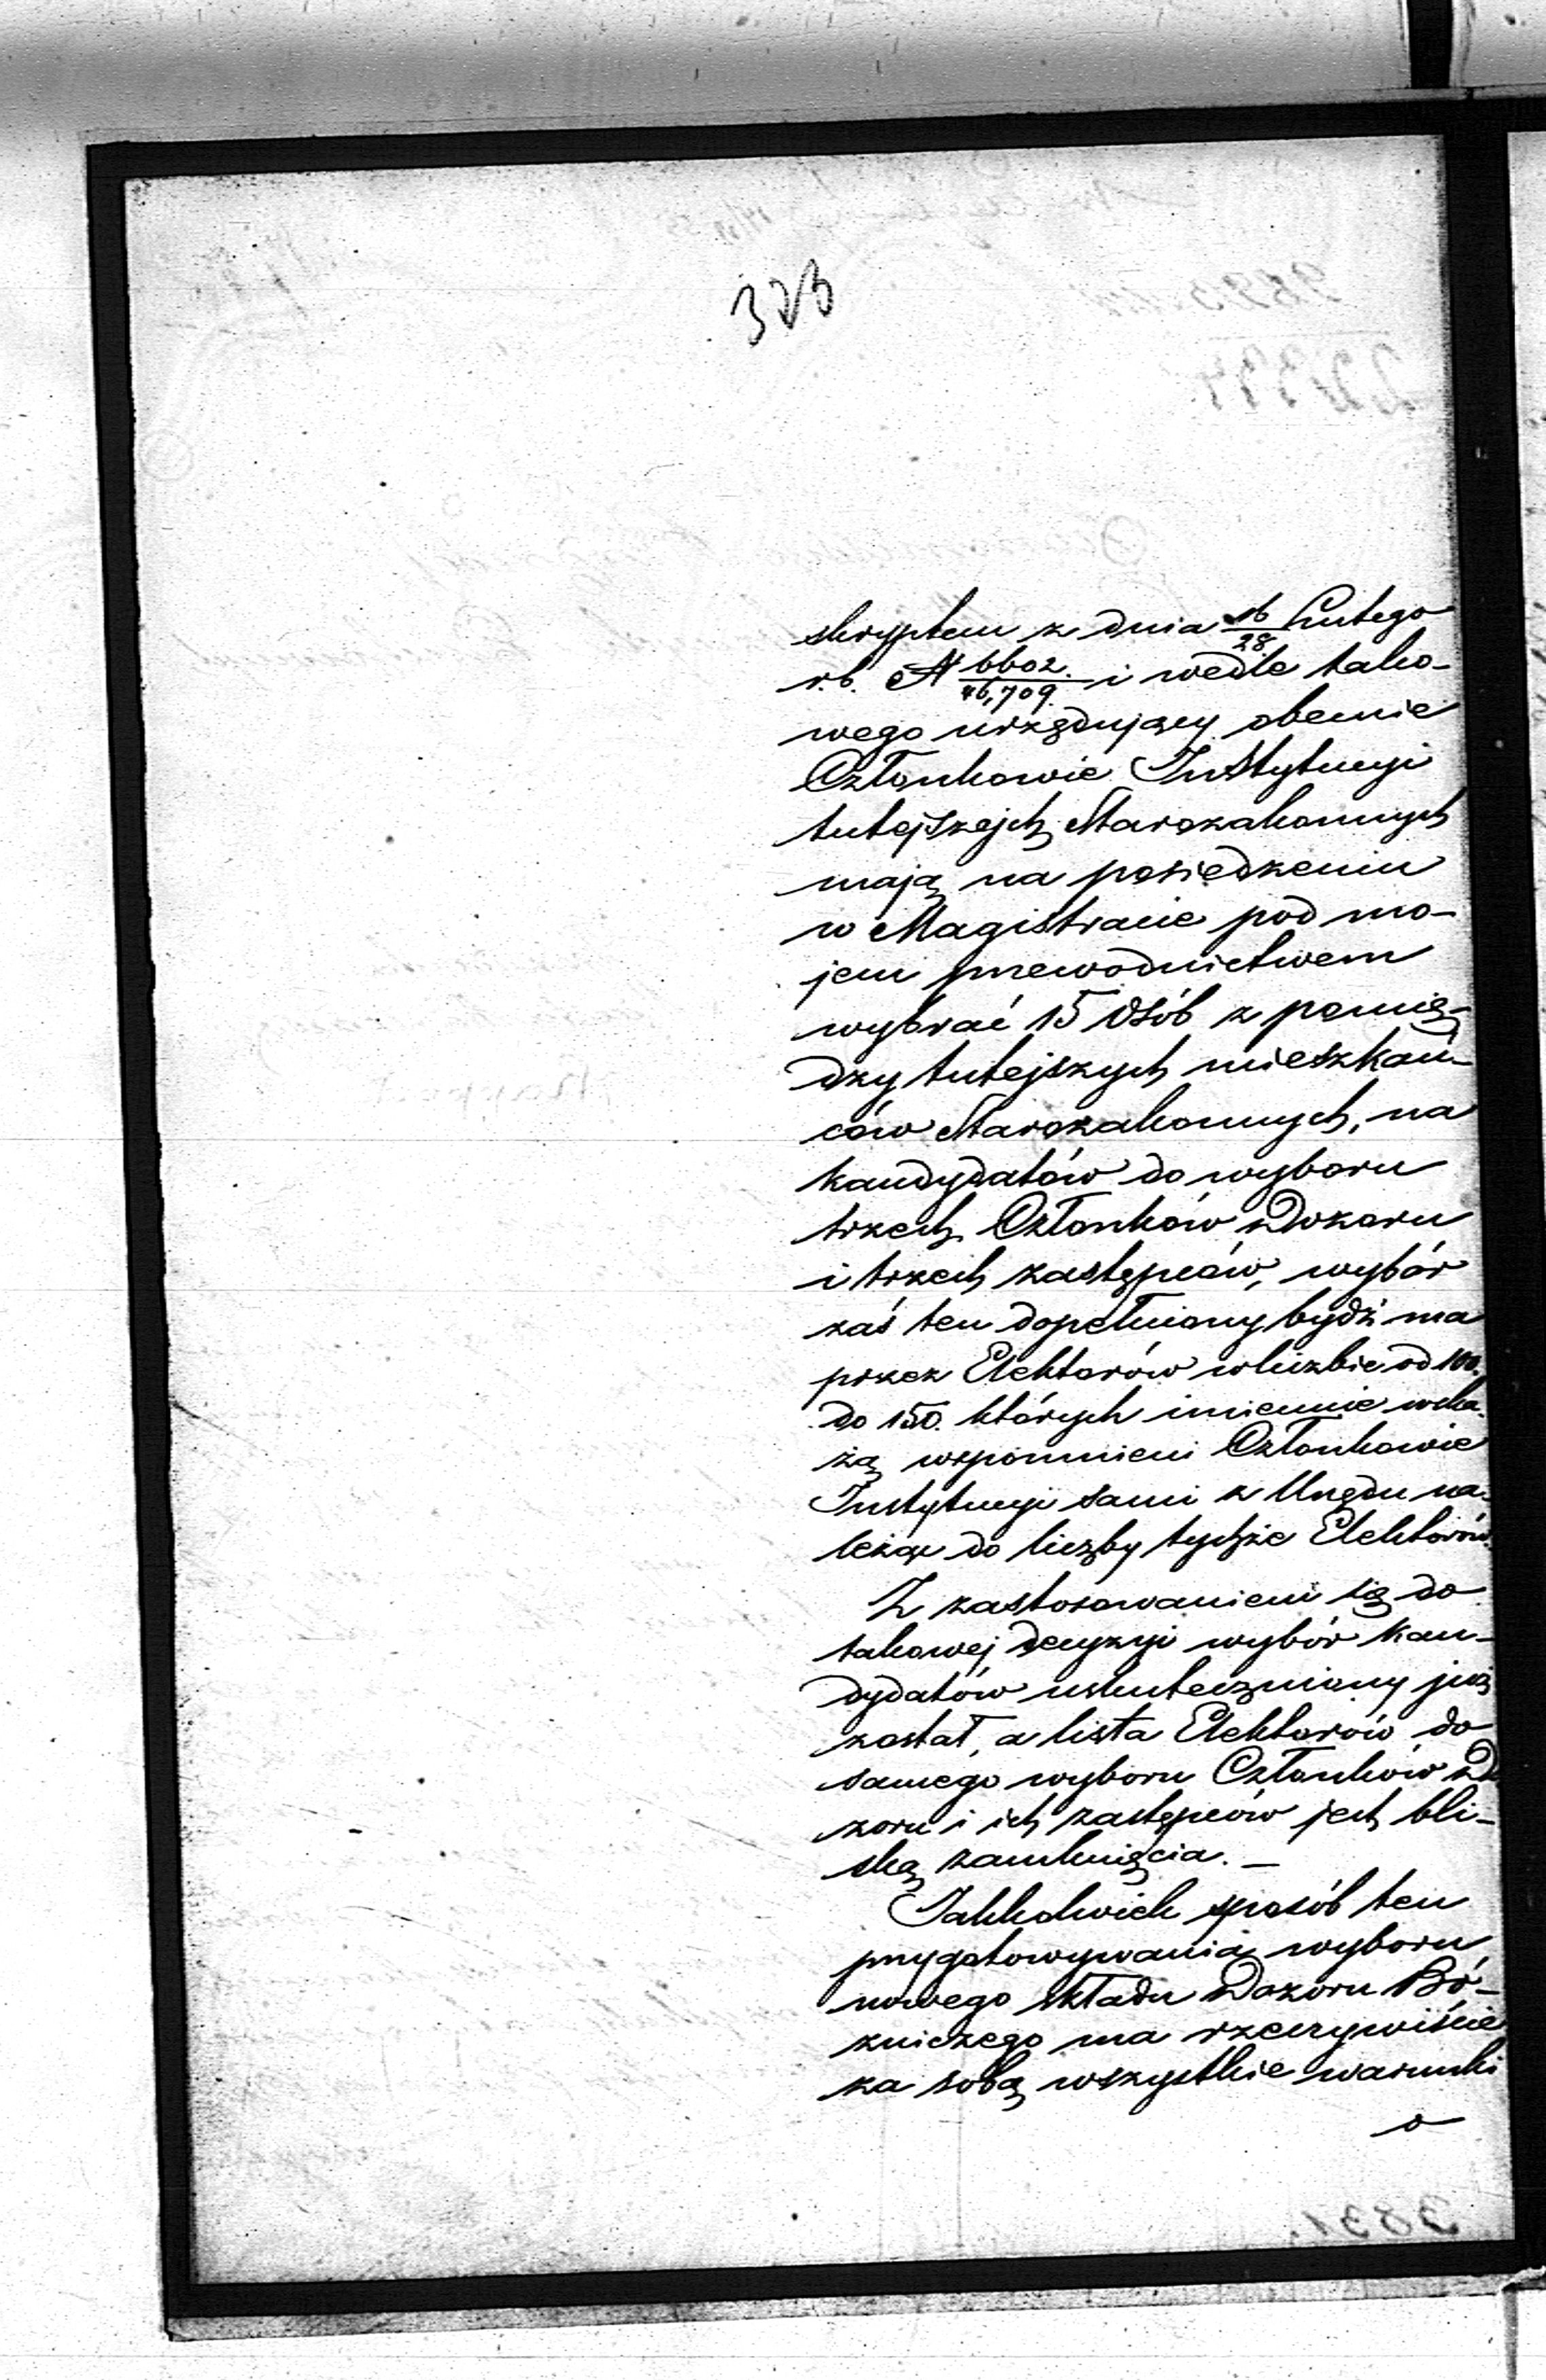 323
skryptem z dnia 16/28 Lutego
r.b. N 6602./46,709. i wedle tako-
wego urzędujący obecnie
Członkowie Instytucyi
tutejszych Starozakonnych
mają na posiedzeniu
w Magistracie pod mo-
jem przewodnictwem
wybrać 15 Osób z pomię-
dzy tutejszych mieszkań-
ców Starozakonnych, na
kandydatów do wyboru
trzech Członków Dozoru
i trzech zastępców, wybór
zaś ten dopełniony bydź ma
przez Elektorów w liczbie od 100.
do 150. których imiennie wska-
żą wspomnieni Członkowie
Instytucyi sami z Urzędu na-
leżąc do liczby tychże Elektorów.
Z zastosowaniem się do
takowej decyzyi wybór kan-
dydatów uskuteczniony już
został, a lista Elektorów do
samego wyboru Członków Do
zoru i ich zastępców jest bli-
ską zamknięcia. —
Jakkolwiek sposób ten
przygotowywania wyboru
nowego składu Dozoru Bó-
zniczego ma rzeczywiście
za sobą wszystkie warunki
o